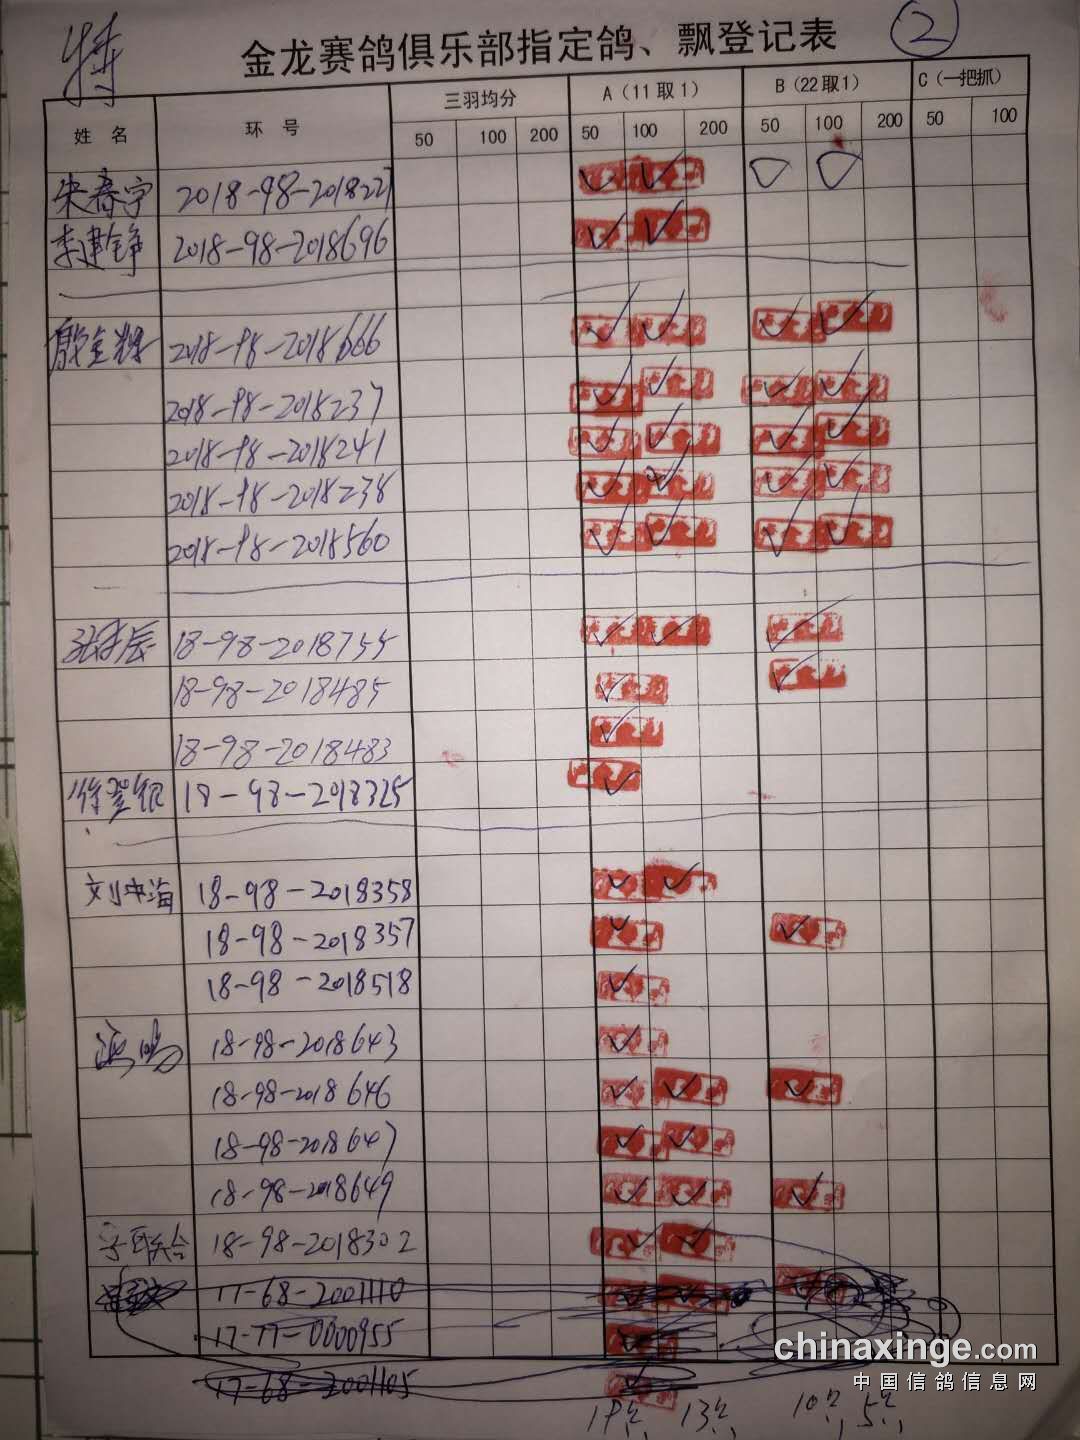 特
金龙赛鸽俱乐部指定鸽、飘登记表 ②
姓 名 环 号 三羽均分 A（11取1） B（22取1） C（一把抓）
50 100 200 50 100 200 50 100 200 50 100
朱春宇 2018-98-2018227
李建铮 2018-98-2018696
殷金辉 2018-98-2018666
2018-98-2018237
2018-98-2018241
2018-98-2018238
2018-98-2018560
18-98-2018755
18-98-2018485
18-98-2018483
徐登银 18-98-2018325
刘中海 18-98-2018358
18-98-2018357
18-98-2018518
鸿鸣 18-98-2018643
18-98-2018646
18-98-2018647
18-98-2018649
联合 18-98-2018302
17-68-2001110
17-77-0000955
17-68-2001105
chinaxinge.com
中国信鸽信息网